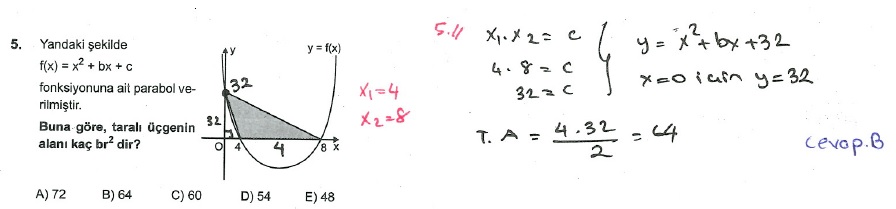 5. Yandaki şekilde
f(x) = x² + bx + c
fonksiyonuna ait parabol ve-
rilmiştir.
Buna göre, taralı üçgenin
alanı kaç br² dir?
y
y = f(x)
32
32
O 4 4 8 x
x₁=4
x₂=8
A) 72 B) 64 C) 60 D) 54 E) 48
5.//
x₁.x₂ = c
4.8 = c
32 = c
y = x²+bx+32
x=0 için y=32
T.A = 4.32 / 2 = 64
Cevap.B